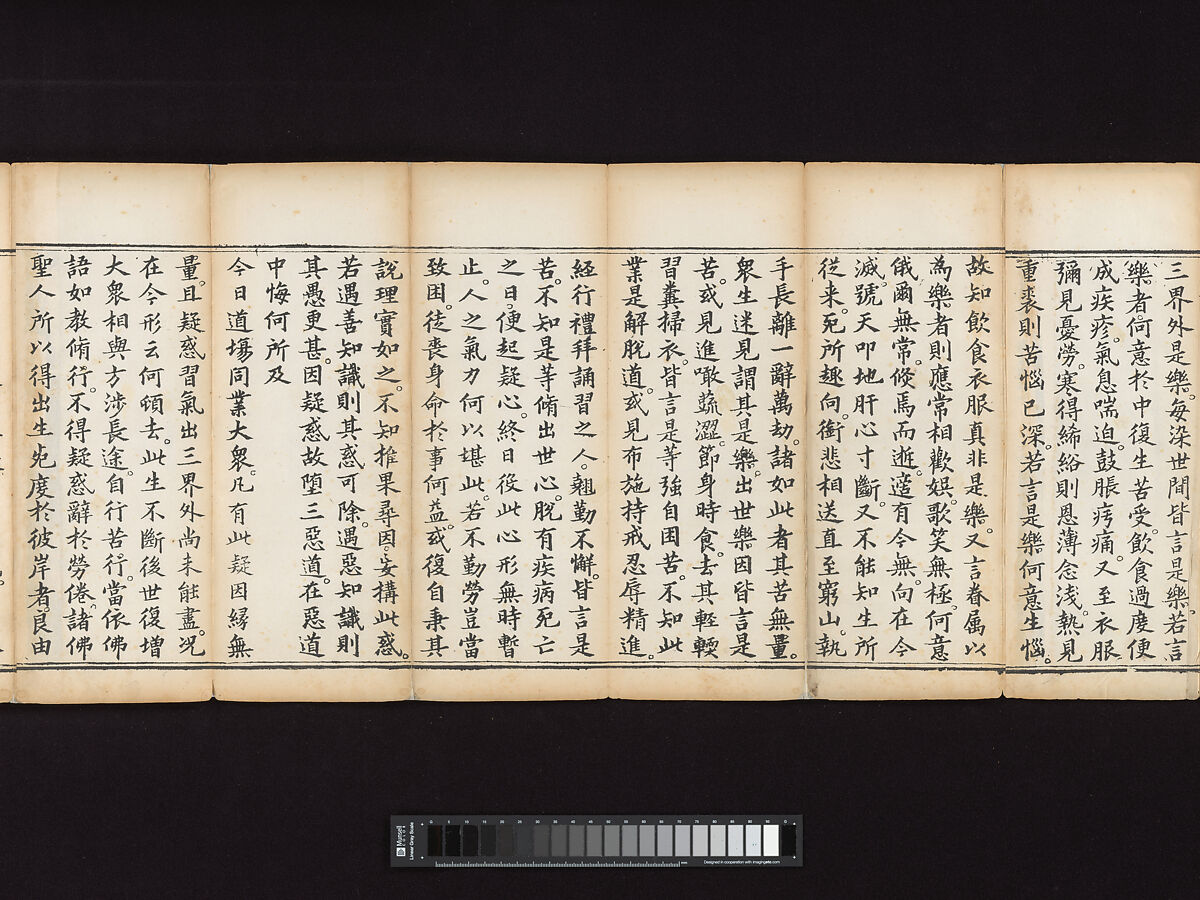 三界外是樂。每染世間皆言是樂若言
樂者。何意於中復生苦受。飲食過度便
成疾疹。氣息喘迫。鼓脹疞痛。又至衣服
彌見憂勞。寒得絺綌則恩薄念淺。熱見
重裘則苦惱已深。若言是樂何意生惱。
故知飲食衣服真非是樂。又言眷属以
為樂者則應常相歡娛。歌笑無極。何意
俄爾無常。倐焉而逝。適有今無。向在今
滅。號天叩地肝心寸斷。又不能知生所
従来。死所趣向。銜悲相送直至窮山。執
手長離一辭萬劫。諸如此者其苦無量。
衆生迷見謂其是樂。出世樂因皆言是
苦。或見進噉蔬澀。節身時食。去其輕輭
習糞掃衣。皆言是等強自困苦。不知此
業是解脫道。或見布施持戒忍辱精進。
經行禮拜誦習之人。翹勤不懈。皆言是
苦。不知是等脩出世心。脫有疾病死亡
之日。便起疑心。終日役此心形無時暫
止。人之氣力何以堪此。若不勤勞豈當
致困。徒喪身命於事何益。或復自秉其
說理實如之。不知推果尋因。妄構此惑。
若遇善知識則其惑可除。遇惡知識則
其愚更甚。因疑惑故墮三惡道。在惡道
中悔何所及
今日道場同業大衆。凡有此疑因縁無
量。且疑惑習氣出三界外尚未能盡。况
在今形云何頓去。此生不斷後世復增
大衆相與方涉長途。自行苦行。當依佛
語如教脩行。不得疑惑辭於勞倦。諸佛
聖人所以得出生死度於彼岸者。良由